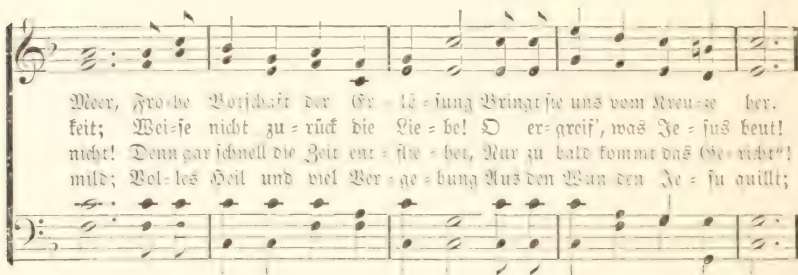 Meer, Fro=he Botschaft der Er = lö = sung Bringt sie uns vom Kreu=ze her.
keit; Wei=se nicht zu = rück die Lie = be! O er=greif', was Je = sus beut!
nicht! Denn gar schnell die Zeit ent = flie = het, Nur zu bald kommt das Ge = richt"!
mild; Vol=les Heil und viel Ver = ge = bung Aus den Wun den Je = su quillt;